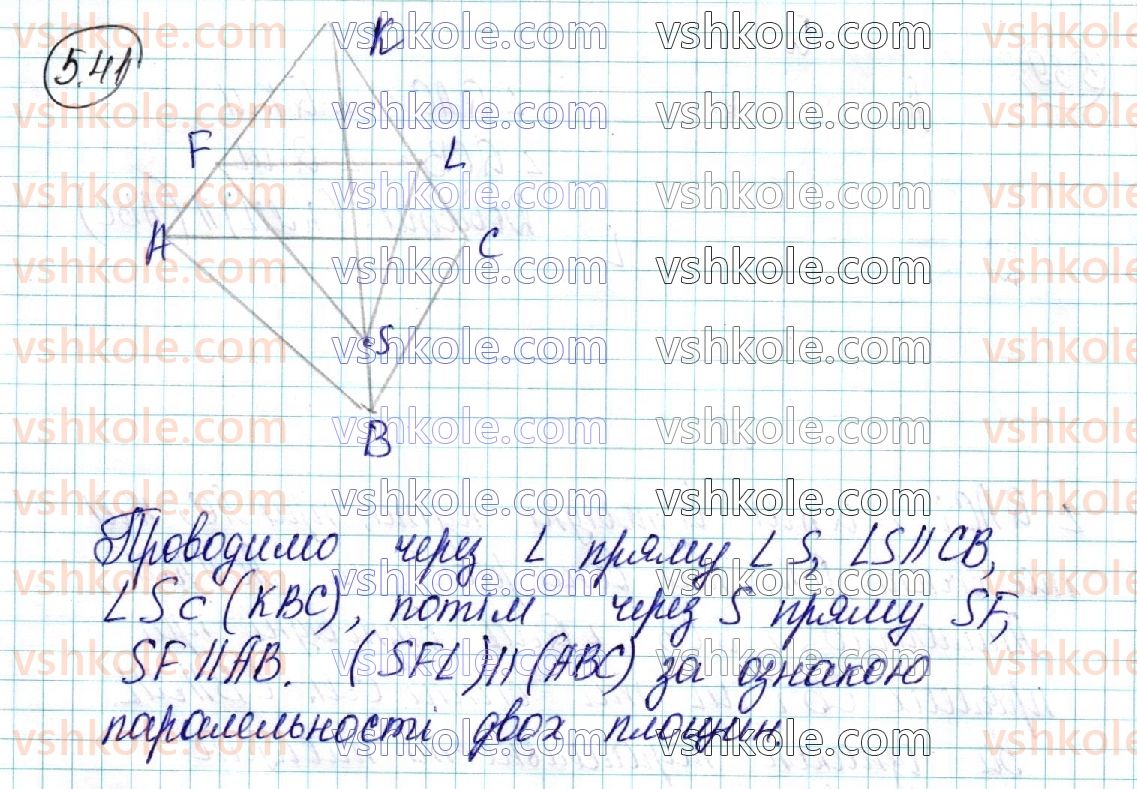 5.41
K
F
L
A
C
S
B
Проводимо через L пряму LS, LS∥CB,
LS⊂(KBC), потім через S пряму SF,
SF∥AB. (SFL)∥(ABC) за ознакою
паралельності двох площин.
vshkole.com